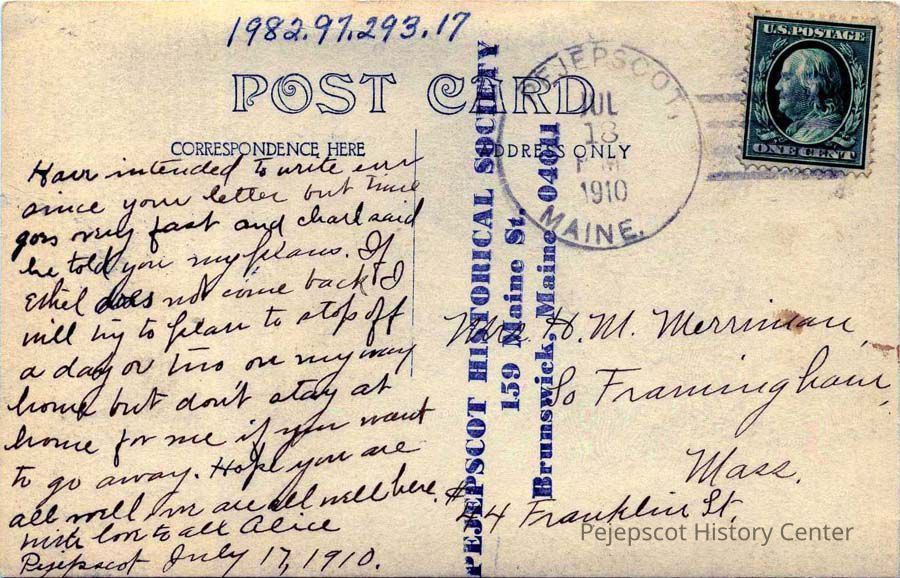 1982.97.293.17
POST CARD
CORRESPONDENCE HERE
ADDRESS ONLY
U.S. POSTAGE
ONE CENT
PEJEPSCOT,
JUL
18
P M
1910
MAINE.
PEJEPSCOT HISTORICAL SOCIETY
159 Maine St.
Brunswick, Maine 04011
Have intended to write ever
since your letter but time
goes very fast and Charl said
he told you my plans. If
Ethel does not come back I
will try to plan to stop off
a day or two on my way
home but don't stay at
home for me if you want
to go away. Hope you are
all well we are all well here.
with love to all Alice
Pejepscot July 17, 1910.
Mrs. H. M. Merriman,
So Framingham,
Mass.
#44 Franklin St.
Pejepscot History Center